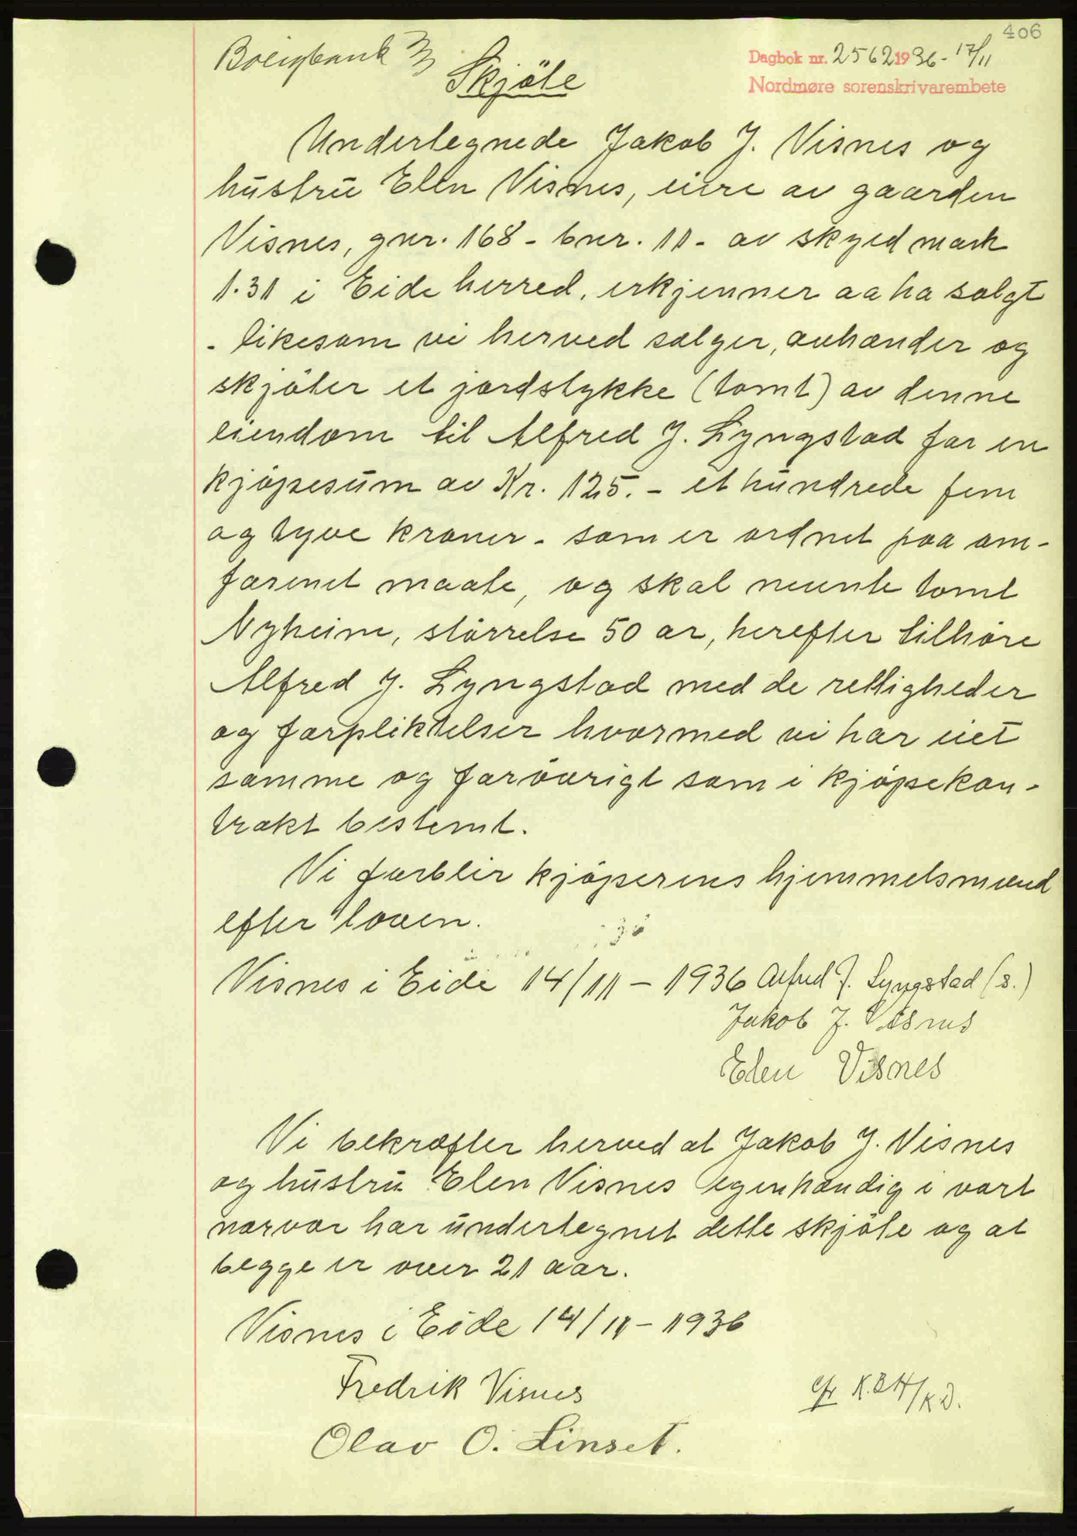 406
Dagbok nr. 2562 1936 - 17/11
Nordmøre sorenskrivarembete
Skjöte
Undertegnede Jakob J. Visnes og
hustru Elen Visnes, eiere av gaarden
Visnes, gnr. 168 - bnr. 11 - av skyld mark
1.31 i Eide herred, erkjenner aa ha solgt
- likesom vi herved sælger, avhænder og
skjöter et jordstykke (tomt) av denne
eiendom til Alfred J. Lyngstad for en
kjöpesum av Kr. 125. - et hundrede fem
og tyve kroner - som er ordnet paa om-
forenet maate, og skal nevnte tomt
Nyheim, störrelse 50 ar, herefter tilhöre
Alfred J. Lyngstad med de rettigheder
og forpliktelser hvormed vi har eiet
samme og forövrigt som i kjöpekon-
trakt bestemt.
Vi forblir kjöperens hjemmelsmænd
efter loven.
Visnes i Eide 14/11 - 1936 Alfred J. Lyngstad (s.)
Jakob J. Visnes
Elen Visnes
Vi bekræfter herved at Jakob J. Visnes
og hustru Elen Visnes egenhændig i vort
nærvær har undertegnet dette skjöte og at
begge er over 21 aar.
Visnes i Eide 14/11 - 1936
Fredrik Visnes
Olav O. Linset.